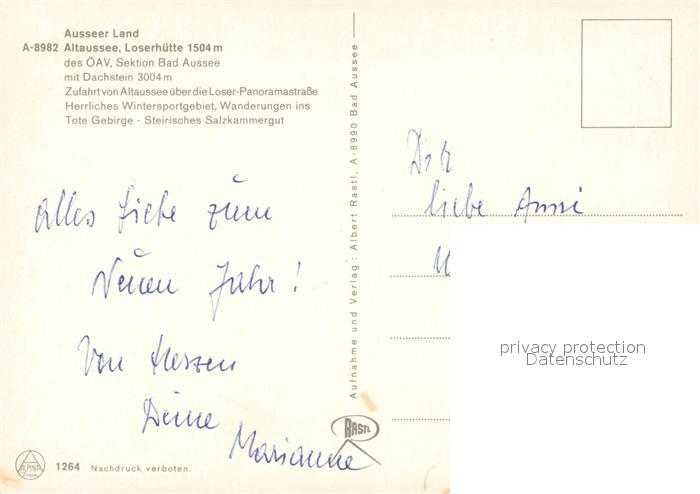 Ausseer Land
A-8982 Altaussee, Loserhütte 1504 m
des ÖAV, Sektion Bad Aussee
mit Dachstein 3004 m
Zufahrt von Altaussee über die Loser-Panoramastraße
Herrliches Wintersportgebiet, Wanderungen ins
Tote Gebirge - Steirisches Salzkammergut
Alles Liebe zum
Neuen Jahr!
Von Herzen
Deine
Marianne
ALPINA
Druck
1264 Nachdruck verboten.
Aufnahme und Verlag: Albert Rastl, A-8990 Bad Aussee
RASTL
Dir
liebe Anni
privacy protection
Datenschutz